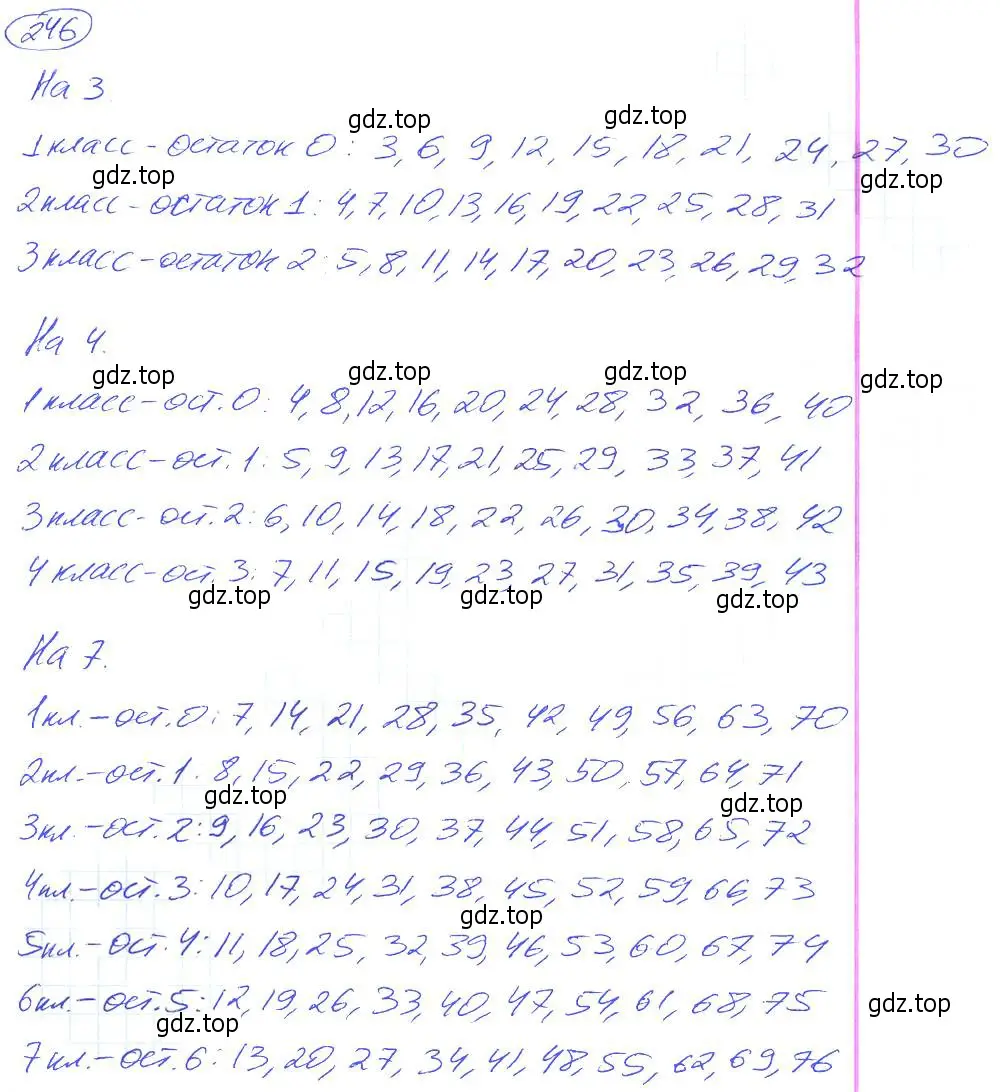 246
На 3
gdz.top gdz.top
1 класс - остаток 0: 3, 6, 9, 12, 15, 18, 21, 24, 27, 30
gdz.top gdz.top
2 класс - остаток 1: 4, 7, 10, 13, 16, 19, 22, 25, 28, 31
3 класс - остаток 2: 5, 8, 11, 14, 17, 20, 23, 26, 29, 32
На 4.
gdz.top gdz.top gdz.top gdz.top
1 класс - ост. 0: 4, 8, 12, 16, 20, 24, 28, 32, 36, 40
2 класс - ост. 1: 5, 9, 13, 17, 21, 25, 29, 33, 37, 41
3 класс - ост. 2: 6, 10, 14, 18, 22, 26, 30, 34, 38, 42
4 класс - ост. 3: 7, 11, 15, 19, 23, 27, 31, 35, 39, 43
gdz.top gdz.top gdz.top
На 7.
1 кл. - ост. 0: 7, 14, 21, 28, 35, 42, 49, 56, 63, 70
2 кл. - ост. 1. 8, 15, 22, 29, 36, 43, 50, 57, 64, 71
gdz.top gdz.top
3 кл. - ост. 2: 9, 16, 23, 30, 37, 44, 51, 58, 65, 72
4 кл. - ост. 3: 10, 17, 24, 31, 38, 45, 52, 59, 66, 73
gdz.top
5 кл. - ост. 4: 11, 18, 25, 32, 39, 46, 53, 60, 67, 74
6 кл. - ост. 5: 12, 19, 26, 33, 40, 47, 54, 61, 68, 75
gdz.top gdz.top
7 кл. - ост. 6: 13, 20, 27, 34, 41, 48, 55, 62, 69, 76